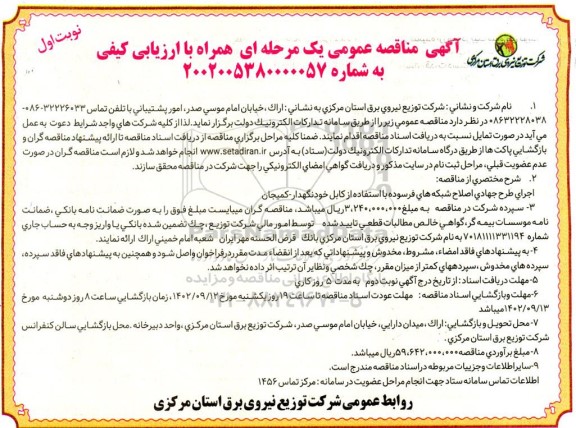 نوبت اول
شرکت توزیع نیروی برق استان مرکزی
آگهی مناقصه عمومی یک مرحله ای همراه با ارزیابی کیفی
به شماره ۲۰۰۲۰۰۵۳۸۰۰۰۰۰۵۷
۱. نام شرکت و نشانی : شرکت توزیع نیروی برق استان مرکزی به نشانی : اراک ، خیابان امام موسی صدر ، امور پشتیبانی با تلفن تماس ۳۲۲۲۶۰۳۳-۰۸۶
۰۸۶۳۲۲۲۸۰۳۸ در نظر دارد مناقصه عمومی زیر را از طریق سامانه تدارکات الکترونیک دولت برگزار نماید. لذا از کلیه شرکت های واجد شرایط دعوت به عمل
می آید در صورت تمایل نسبت به دریافت اسناد مناقصه اقدام نمایند. ضمنا کلیه مراحل برگزاری مناقصه از دریافت اسناد مناقصه تا ارائه پیشنهاد مناقصه گران و
بازگشایی پاکت ها از طریق درگاه سامانه تدارکات الکترونیک دولت (ستاد) به آدرس www.setadiran.ir انجام خواهد شد و لازم است مناقصه گران در صورت
عدم عضویت قبلی، مراحل ثبت نام در سایت مذکور و دریافت گواهی امضای الکترونیکی را جهت شرکت در مناقصه محقق سازند.
۲. شرح مختصری از مناقصه:
اجرای طرح جهادی اصلاح شبکه های فرسوده با استفاده از کابل خودنگهدار-کمیجان
۳- سپرده شرکت در مناقصه به مبلغ ۳،۲۴۰،۰۰۰،۰۰۰ ریال میباشد، مناقصه گران میبایست مبلغ فوق را به صورت ضمانت نامه بانکی ، ضمانت
نامه موسسات بیمه گر، گواهی خالص مطالبات قطعی تایید شده توسط امور مالی شرکت توزیع - چک تضمین شده بانکی یا واریز وجه به حساب جاری
شماره ۷۰۱۸۱۱۱۱۳۳۱۱۹۴ به نام شرکت توزیع نیروی برق استان مرکزی بانک قرض الحسنه مهر ایران شعبه امام خمینی اراک ارائه نمایند.
۴- به پیشنهادهای فاقد امضاء، مشروط، مخدوش و پیشنهاداتی که بعد از انقضاء مدت مقرر در فراخوان واصل شود و همچنین به پیشنهادهای فاقد سپرده،
سپرده های مخدوش، سپرده های کمتر از میزان مقرر، چک شخصی و نظایر آن ترتیب اثر داده نخواهد شد.
۵-مهلت دریافت اسناد : از تاریخ درج آگهی نوبت دوم به مدت ۵ روز کاری
۶-مهلت و بازگشایی اسناد مناقصه: مهلت عودت اسناد مناقصه تا ساعت ۱۹ روز یکشنبه مورخ ۱۴۰۲/۰۹/۱۲ ، زمان بازگشایی ساعت ۸ روز دوشنبه مورخ
۱۴۰۲/۰۹/۱۳ میباشد
۷- محل تحویل و بازگشایی : اراک ، میدان دارایی ، خیابان امام موسی صدر ، شرکت توزیع برق استان مرکزی ، واحد دبیرخانه . محل بازگشایی سالن کنفرانس
شرکت توزیع برق استان مرکزی.
۸-مبلغ برآوردی مناقصه ۵۹،۶۴۲،۰۰۰،۰۰۰ ریال میباشد.
۹-سایر اطلاعات و جزییات مربوطه در اسناد مناقصه مندرج است.
اطلاعات تماس سامانه ستاد جهت انجام مراحل عضویت در سامانه : مرکز تماس ۱۴۵۶
روابط عمومی شرکت توزیع نیروی برق استان مرکزی